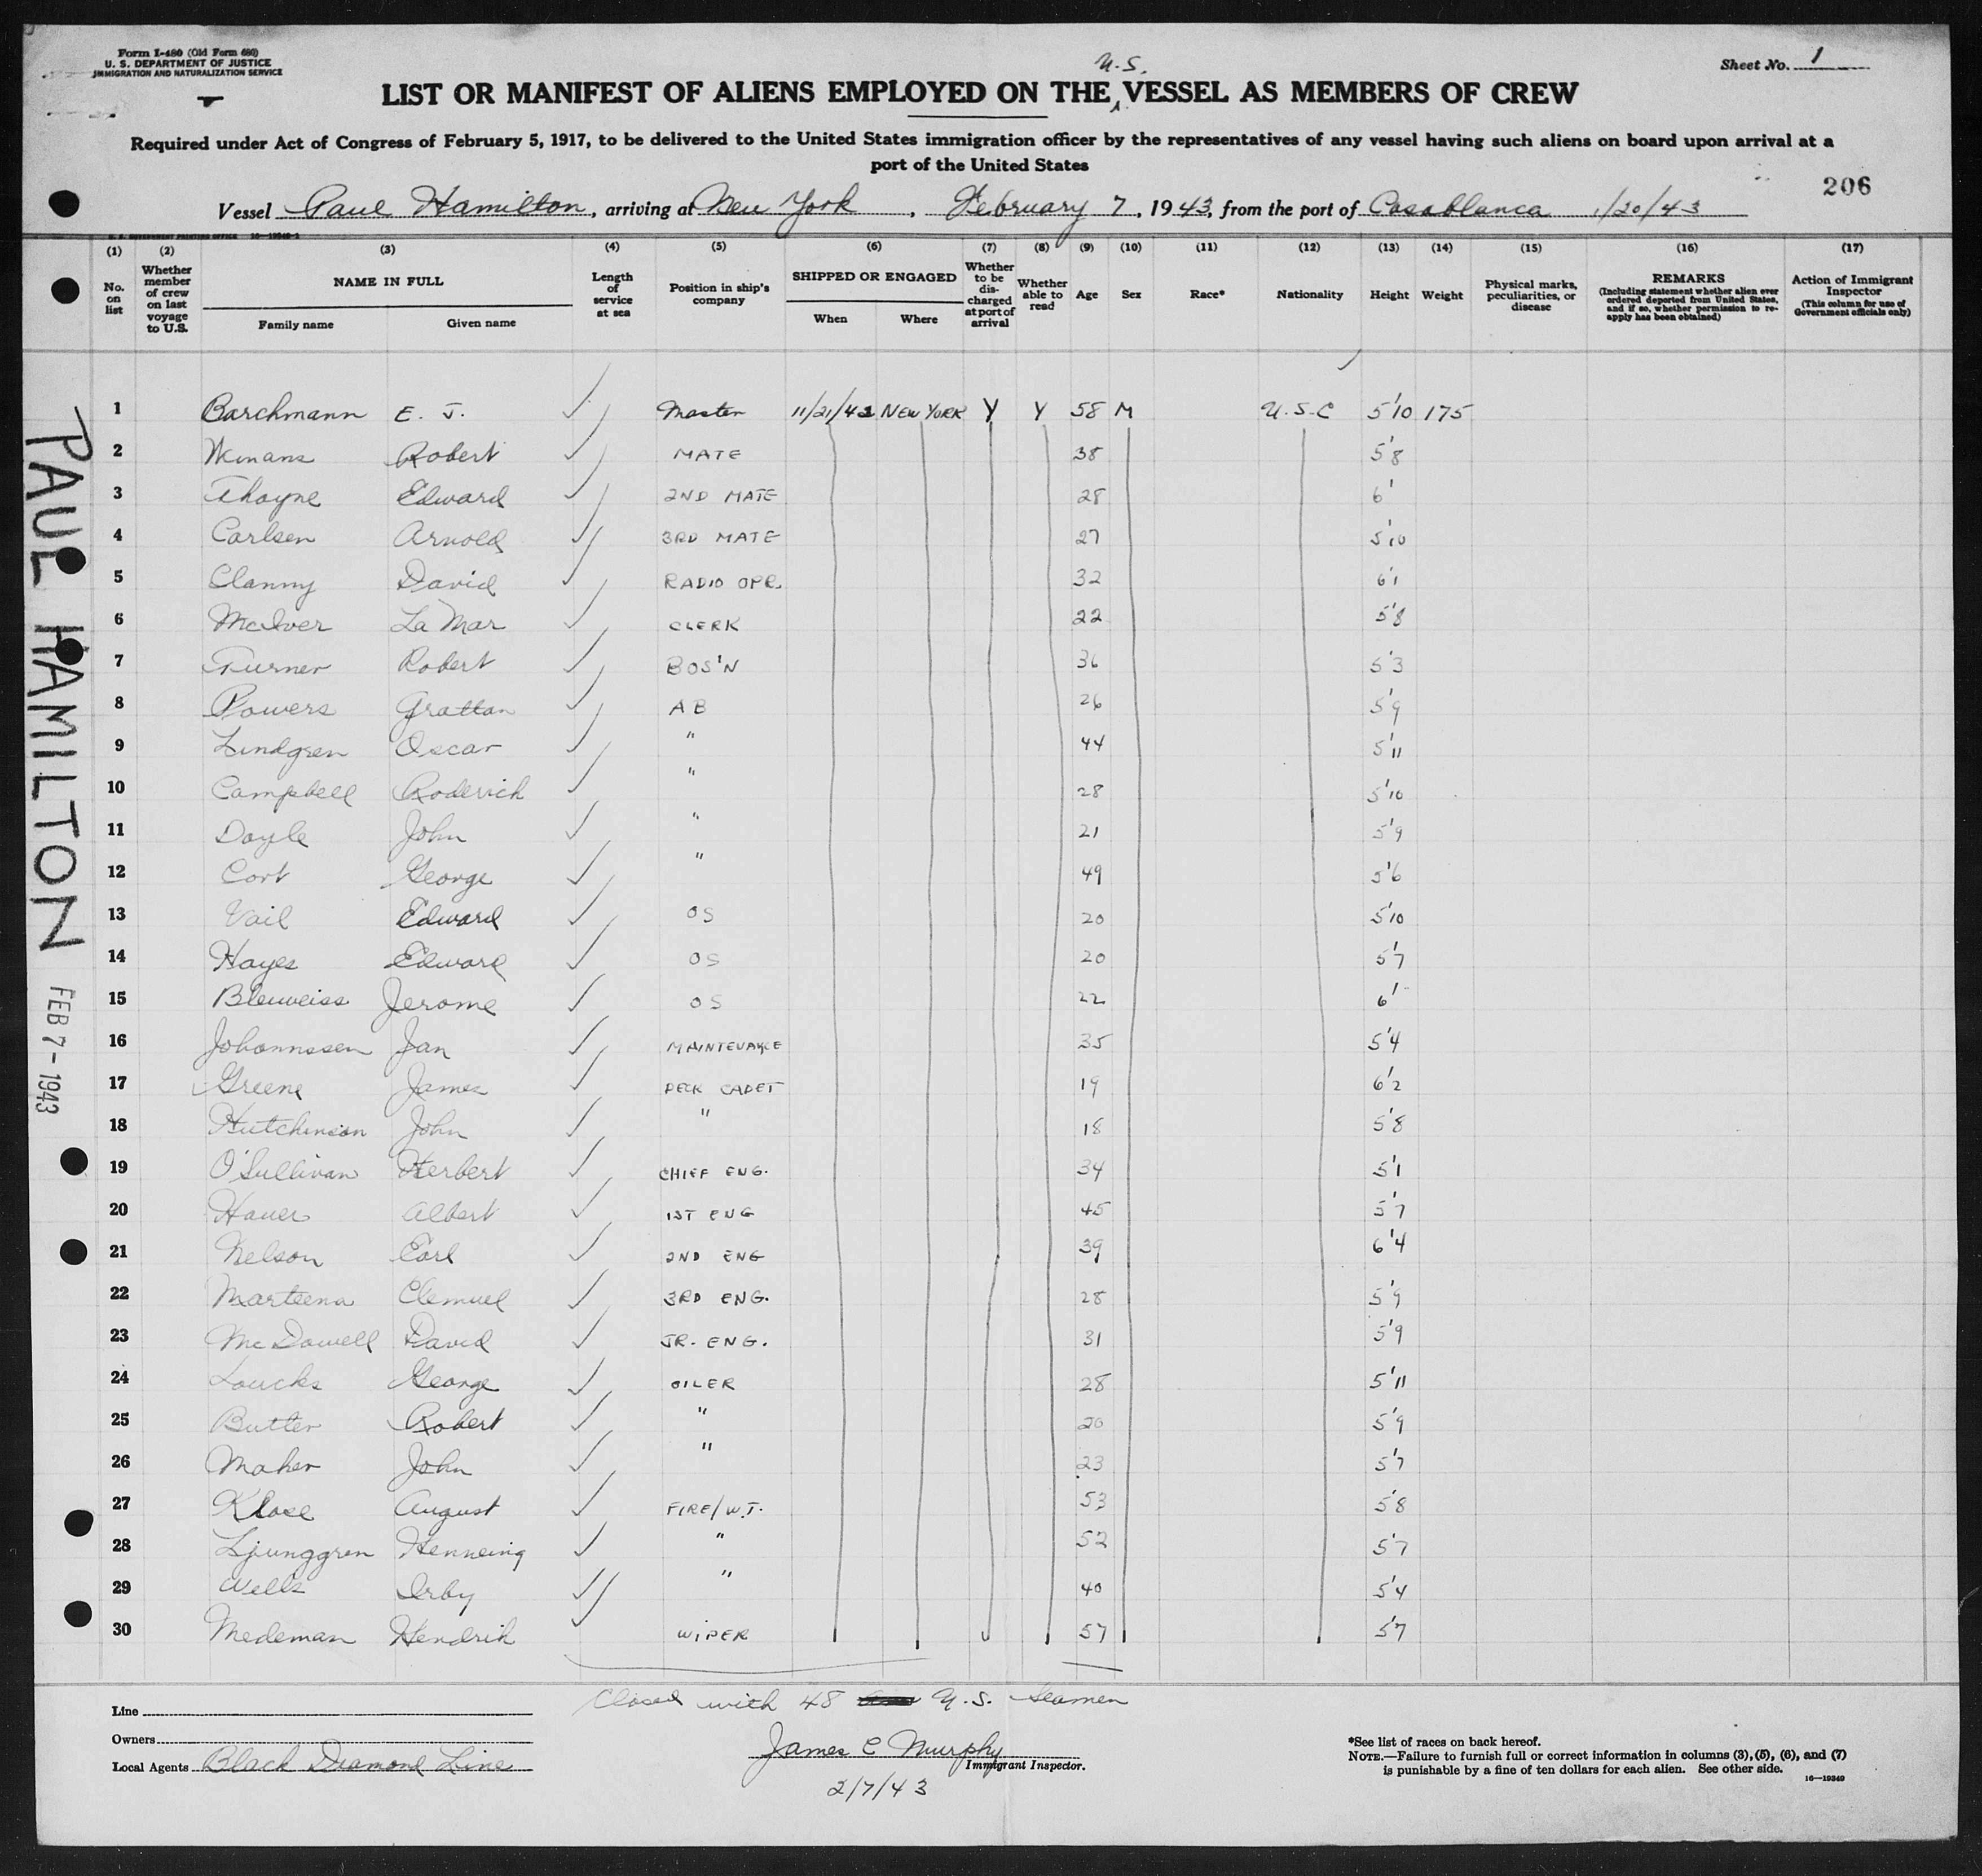 Form I-480 (Old Form 680)
U. S. DEPARTMENT OF JUSTICE
IMMIGRATION AND NATURALIZATION SERVICE
Sheet No. 1
U.S.
LIST OR MANIFEST OF ALIENS EMPLOYED ON THE VESSEL AS MEMBERS OF CREW
Required under Act of Congress of February 5, 1917, to be delivered to the United States immigration officer by the representatives of any vessel having such aliens on board upon arrival at a
port of the United States
206
Vessel Paul Hamilton, arriving at New York, February 7, 1943, from the port of Casablanca 1/20/43
(1) (2) (3) (4) (5) (6) (7) (8) (9) (10) (11) (12) (13) (14) (15) (16) (17)
No. on list
Whether member of crew on last voyage to U.S.
NAME IN FULL
Family name Given name
Length of service at sea
Position in ship's company
SHIPPED OR ENGAGED
When Where
Whether to be discharged at port of arrival
Whether able to read
Age
Sex
Race*
Nationality
Height
Weight
Physical marks, peculiarities, or disease
REMARKS
(Including statement whether alien ever ordered deported from United States, and if so, whether permission to re-apply has been obtained)
Action of Immigrant Inspector
(This column for use of Government officials only)
1 Barchmann E. J. Master 11/21/42 NEW YORK Y Y 58 M U.S.C 5'10 175
2 Winans Robert MATE 38 5'8
3 Thayne Edward 2ND MATE 28 6'
4 Carlsen Arnold 3RD MATE 27 5'10
5 Clanny David RADIO OPR. 32 6'1
6 McIver La Mar CLERK 22 5'8
7 Turner Robert BOS'N 36 5'3
8 Powers Grattan AB 26 5'9
9 Lindgren Oscar " 44 5'11
10 Campbell Roderick " 28 5'10
11 Doyle John " 21 5'9
12 Cort George " 49 5'6
13 Vail Edward OS 20 5'10
14 Hayes Edward OS 20 5'7
15 Bleiweiss Jerome OS 22 6'
16 Johannssen Jan MAINTENANCE 35 5'4
17 Greene James DECK CADET 19 6'2
18 Hutchinson John " 18 5'8
19 O'Sullivan Herbert CHIEF ENG. 34 5'1
20 Hauer Albert 1ST ENG 45 5'7
21 Nelson Earl 2ND ENG 39 6'4
22 Marteena Clemuel 3RD ENG. 28 5'9
23 McDowell David JR. ENG. 31 5'9
24 Loucks George OILER 28 5'11
25 Butler Robert " 20 5'9
26 Maher John " 23 5'7
27 Klose August FIRE/W.T. 53 5'8
28 Ljunggren Henneing " 52 5'7
29 Wells Irby " 40 5'4
30 Medeman Hendrik WIPER 57 5'7
PAUL HAMILTON FEB 7-1943
Closed with 48 U.S. Seamen
Line
Owners
Local Agents Black Diamond Line
James C Murphy
Immigrant Inspector.
2/7/43
*See list of races on back hereof.
NOTE.—Failure to furnish full or correct information in columns (3), (5), (6), and (7)
is punishable by a fine of ten dollars for each alien. See other side.
16—19349